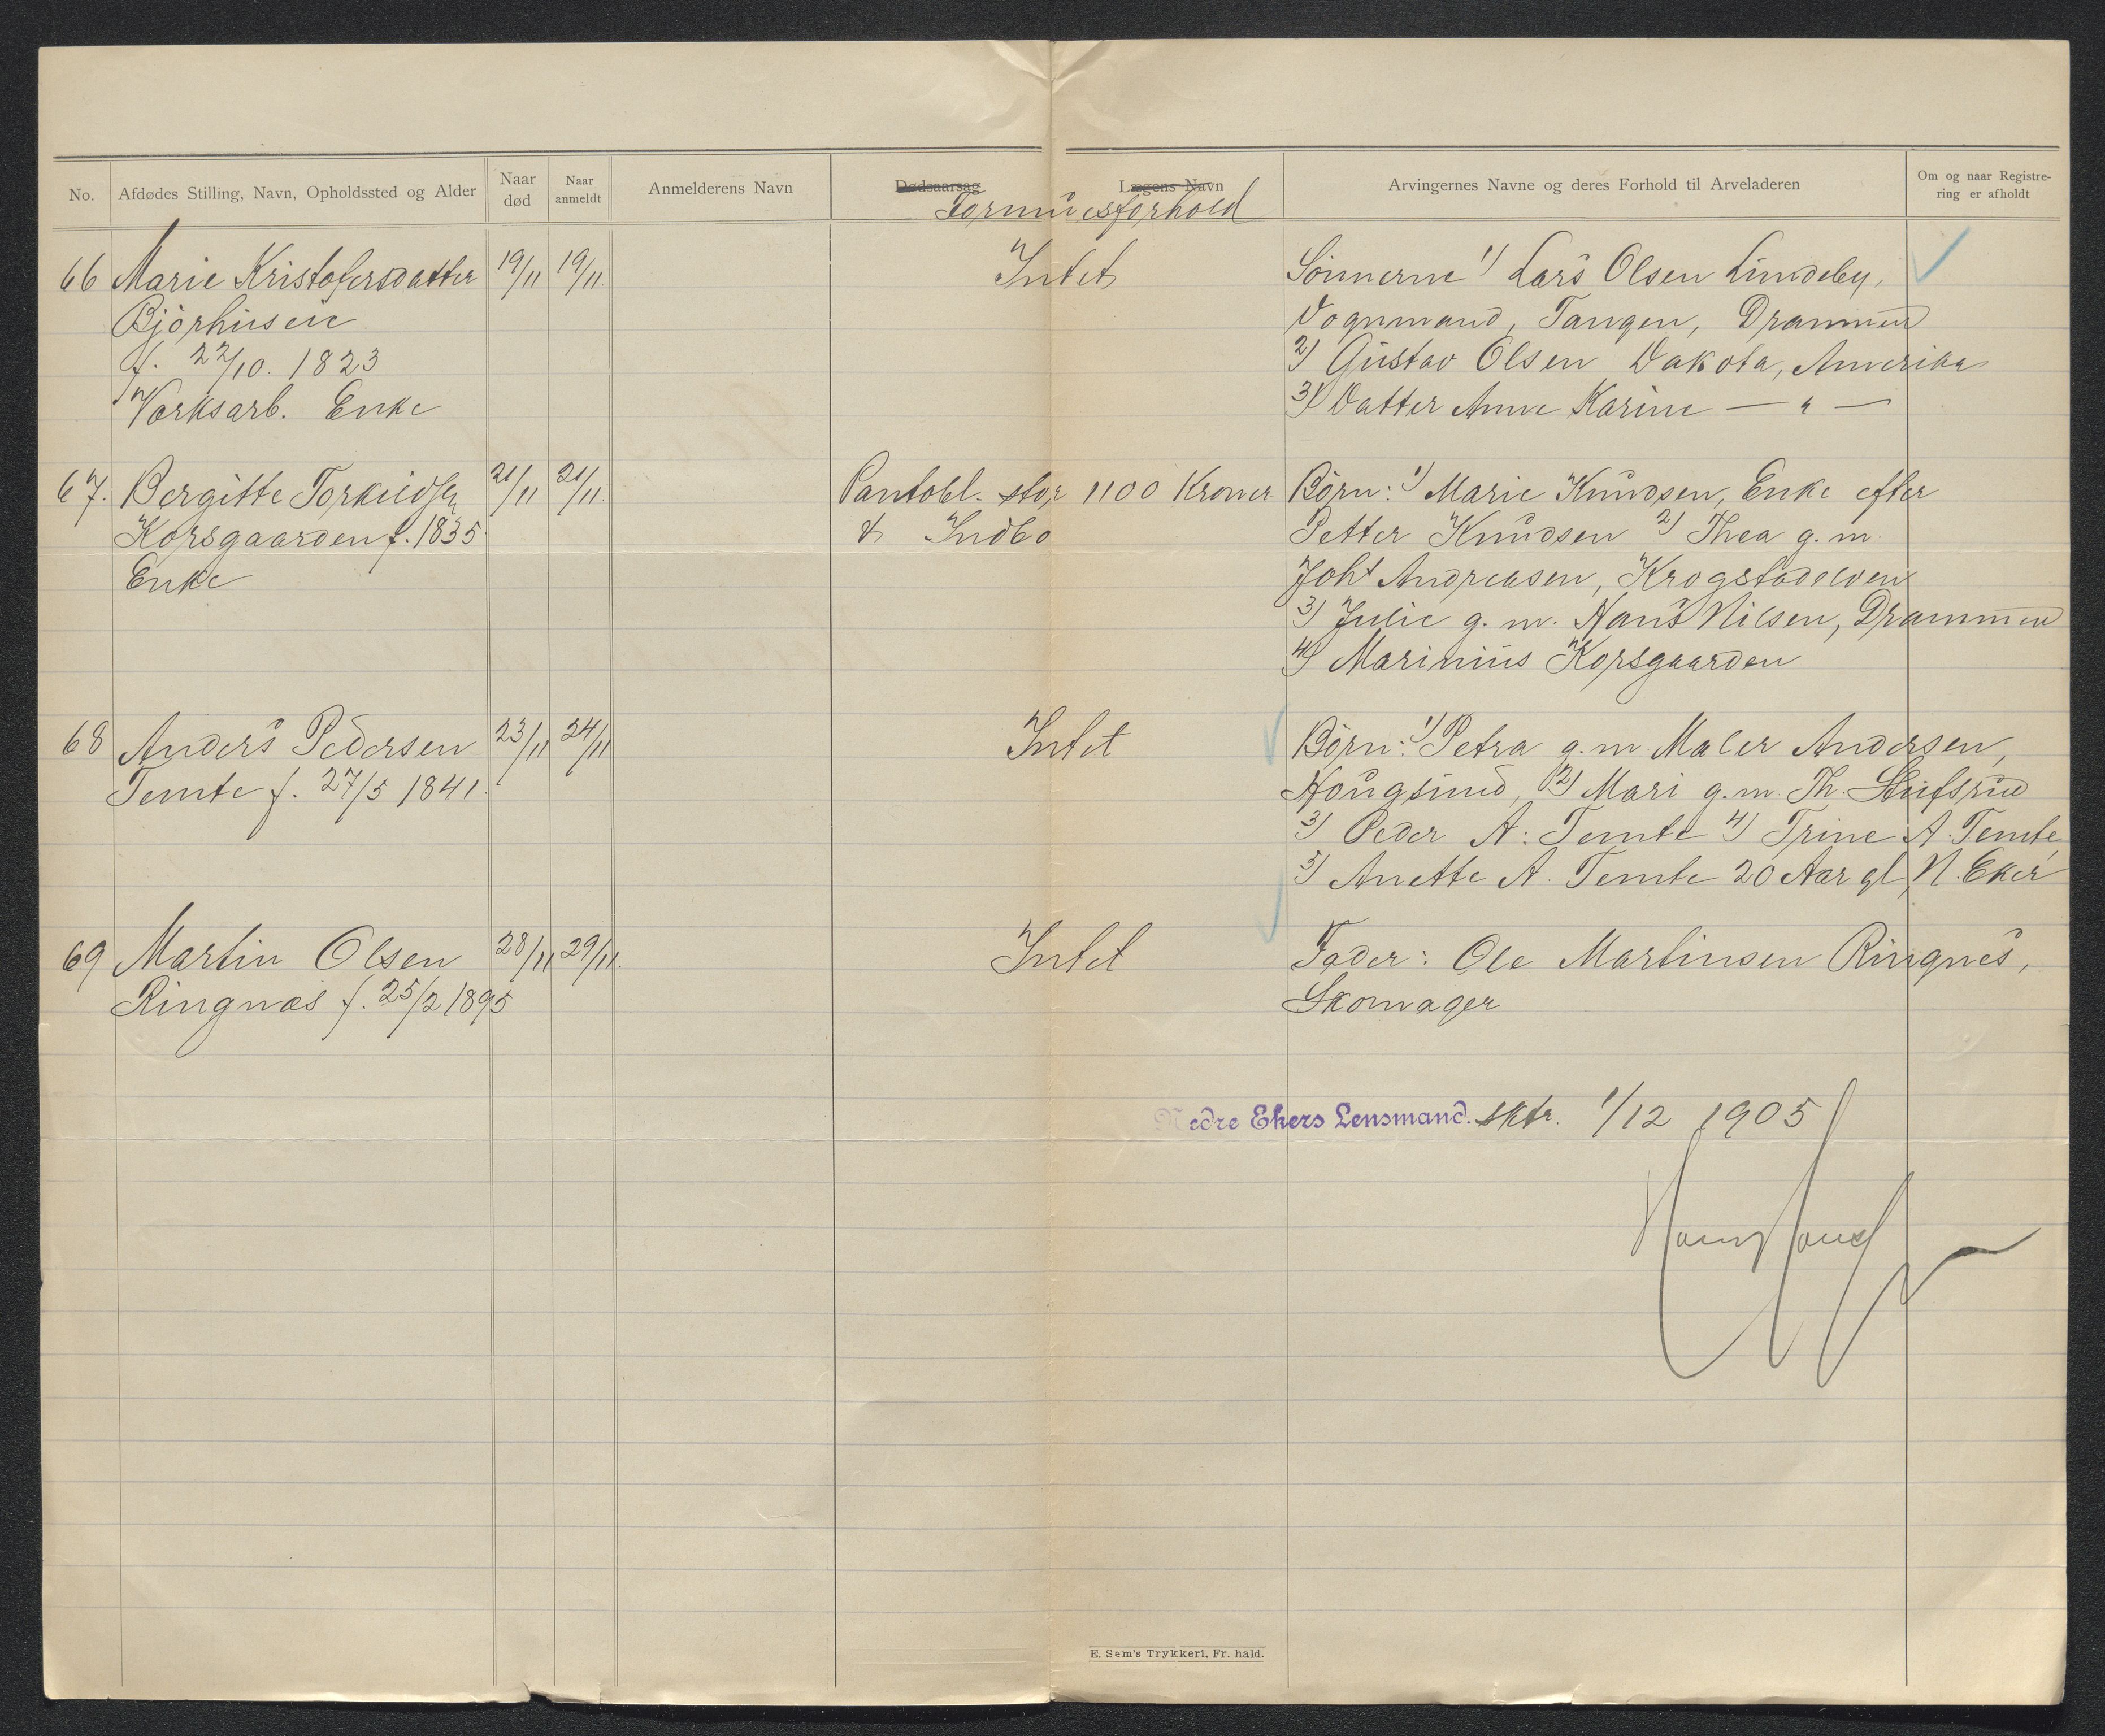 No. Afdødes Stilling, Navn, Opholdssted og Alder Naar død Naar anmeldt Anmelderens Navn Dødsaarsag Lægens Navn Arvingernes Navne og deres Forhold til Arveladeren Om og naar Registrering er afholdt
Formuesforhold
66 Marie Kristofersdatter 19/11 19/11. Intet Sønnerne 1) Lars Olsen Lindeby,
Bjørhuseie Vognmand, Tangen, Drammen
f. 22/10. 1823 2) Gustav Olsen Dakota, Amerika
Værksarb. Enke 3) Datter Anne Karine — " —
67. Bergitte Torkildsen 21/11 21/11. Pantobl. stor 1100 Kroner Børn: 1) Marie Knudsen, Enke efter
Korsgaarden f. 1835. & Indbo Petter Knudsen 2) Thea g. m.
Enke Joht Andreasen, Krogstadelven
3) Julie g. m. Hans Nilsen, Drammen
4) Marinius Korsgaarden
68 Anders Pedersen 23/11 24/11 Intet Børn: 1) Petra g. m. Maler Andersen,
Temte f. 27/5 1841. Hougsund, 2) Mari g. m. Th. Stufsrud
3) Peder A: Temte 4) Trine A. Temte,
5) Anette A. Temte 20 Aar gl, N. Eker
69 Martin Olsen 28/11 29/11. Intet Fader: Ole Martinsen Ringnes,
Ringnæs f. 25/2 1895 Skomager
Nedre Ekers Lensmand. sktr. 1/12 1905
E. Sem's Trykkeri. Fr. hald.